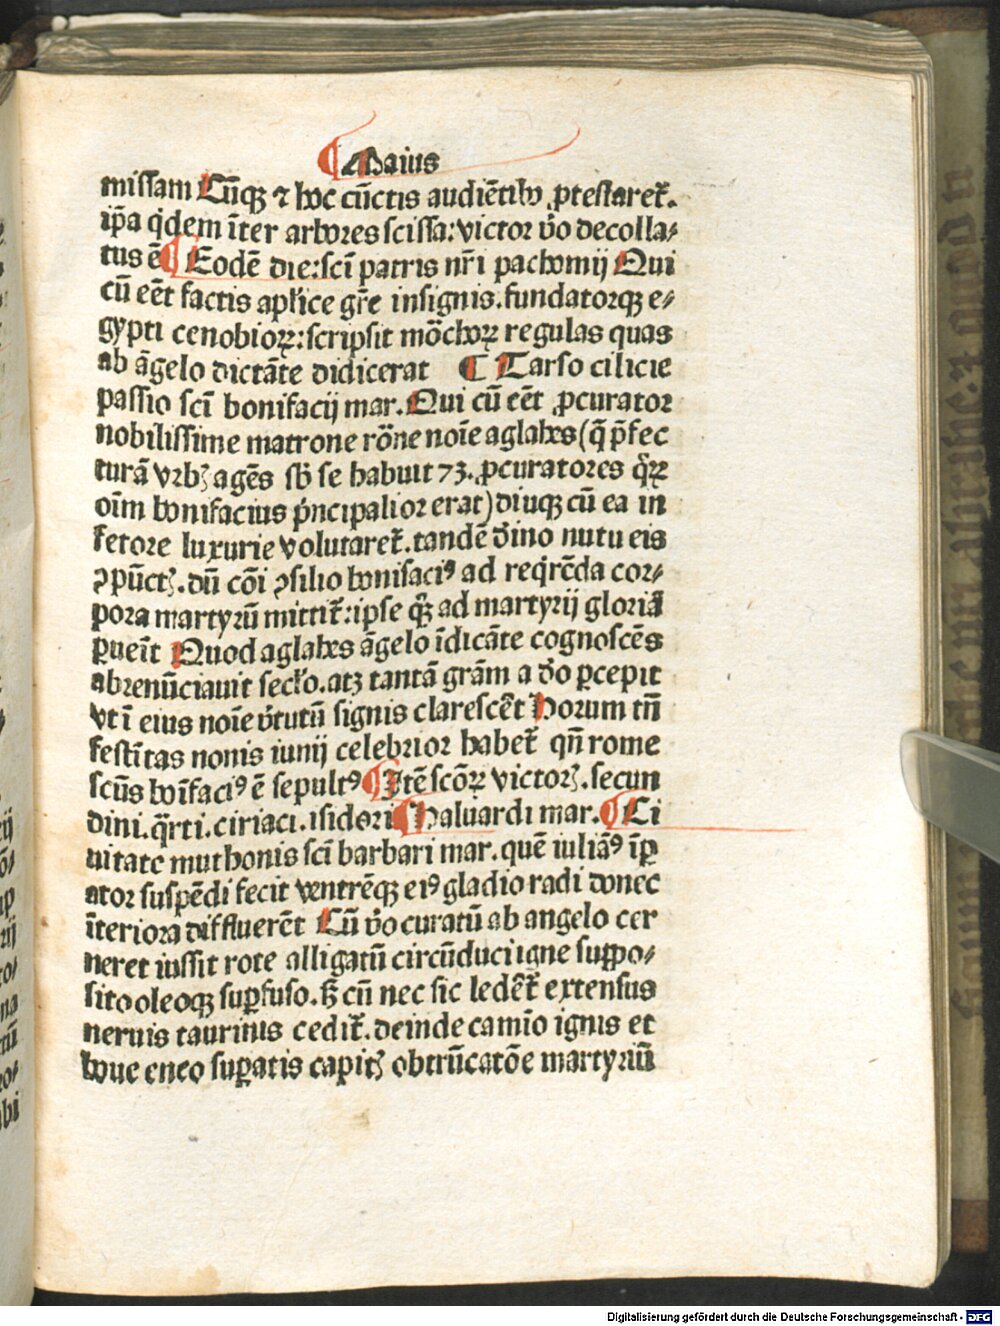 ¶ Maius
missam Cūqꝫ ⁊ hoc cūctis audiētibꝰ ꝓtestaret᷑.
ip̄a q̇dem īter arbores scissa: victor v̇o decolla⸗
tus ē ¶ Eodē die: scī patris nr̄i pachomij Qui
cū eēt factis apl'ice gr̄e insignis. fundatorqꝫ e⸗
gypti cenobioꝝ: scripsit mōchoꝝ regulas quas
ab āgelo dictāte didicerat ¶ Tarso cilicie
passio scī bonifacij mar. Qui cū eēt ꝓcurator
nobilissime matrone rōne noīe aglahes (q̄ p̄fec
turā vrbꝫ agēs sb̄ se habuit 73. ꝓcuratores q̊ꝝ
oīm bonifacius pͥncipalior erat) diuqꝫ cū ea in
fetore luxurie volutaret᷑. tandē dīno nutu eis
ꝯpūctꝫ. dū cōi ꝯsilio bonifaciꝰ ad reqͥrēda cor⸗
pora martyrū mittit᷑: ipse qꝫ ad martyrij gloriā
ꝑueīt Quod aglahes āgelo īdicāte cognoscēs
abrenūciauit secl'o. atꝫ tantā grām a dō ꝑcepit
vt ī eius noīe v̇tutū signis clarescēt Horum tn̄
festītas nonis iunij celebrior habet᷑ qn̄ rome
scūs boīfaciꝰ ē sepultꝰ ¶ Itē scōꝝ victorꝫ. secun
dini. q̈rti. ciriaci. isidori ¶ Haluardi mar. ¶ Ci
uitate muthonis scī barbari mar. quē iuliāꝰ īꝑ
ator suspēdi fecit ventrēqꝫ eiꝰ gladio radi donec
īteriora diffluerēt Cū v̇o curatū ab angelo cer
neret iussit rote alligatū circūduci igne suppo⸗
sito oleoqꝫ suꝑfuso. sꝫ cū nec sic ledēt᷑ extensus
neruis taurinis cedit᷑. deinde camīo ignis et
boue eneo suꝑatis capitꝫ obtrūcatōe martyriū
Digitalisierung gefördert durch die Deutsche Forschungsgemeinschaft - DFG